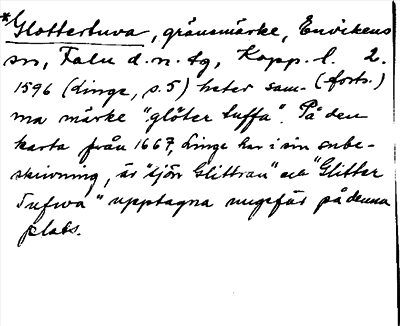 *Glottertuva, gränsmärke, Envikens
sn, Falu d.n. tg, Kopp. l. 2.
(forts.)
1596 (Linge, s. 5) heter sam-
ma märke "glöter tuffa". På den
karta från 1667, Linge har i sin avbe-
skrivning, är "sjön Glittran" och "Glitter
Tufwa" upptagna ungefär på denna
plats.